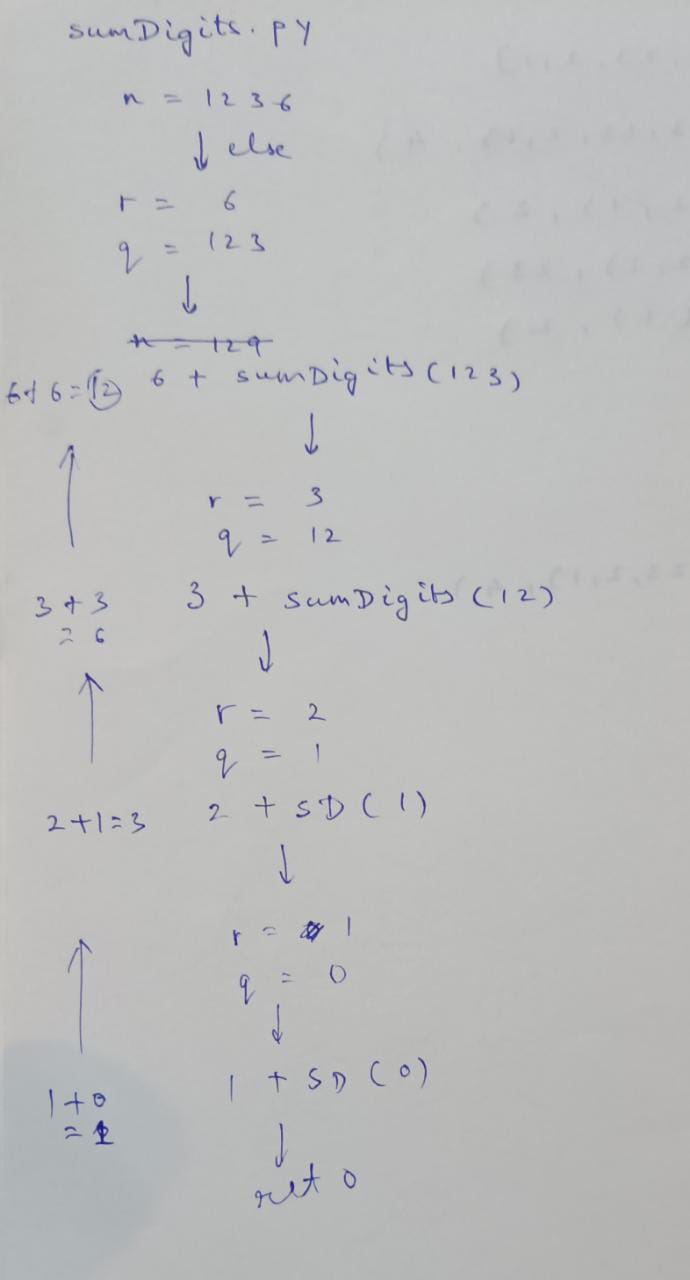 sumDigits.py
n = 1236
↓ else
r = 6
q = 123
↓
n = 129
6+6=12 6 + sumDigits(123)
↓
↑ r = 3
q = 12
3+3 3 + sumDigits(12)
= 6
↓
↑ r = 2
q = 1
2+1=3 2 + SD(1)
↓
r = 1
↑ q = 0
↓
1 + SD(0)
1+0
= 1
↓
ret 0